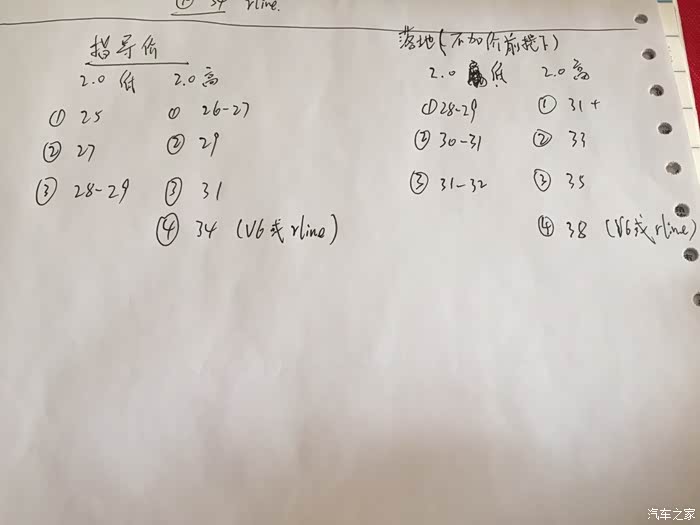 ① 34 rline.
指导价
2.0 低 2.0 高
① 25 ① 26-27
② 27 ② 29
③ 28-29 ③ 31
④ 34 (V6或rline)
落地(不加价前提下)
2.0 低 2.0 高
① 28-29 ① 31+
② 30-31 ② 33
③ 31-32 ③ 35
④ 38 (V6或rline)
汽车之家